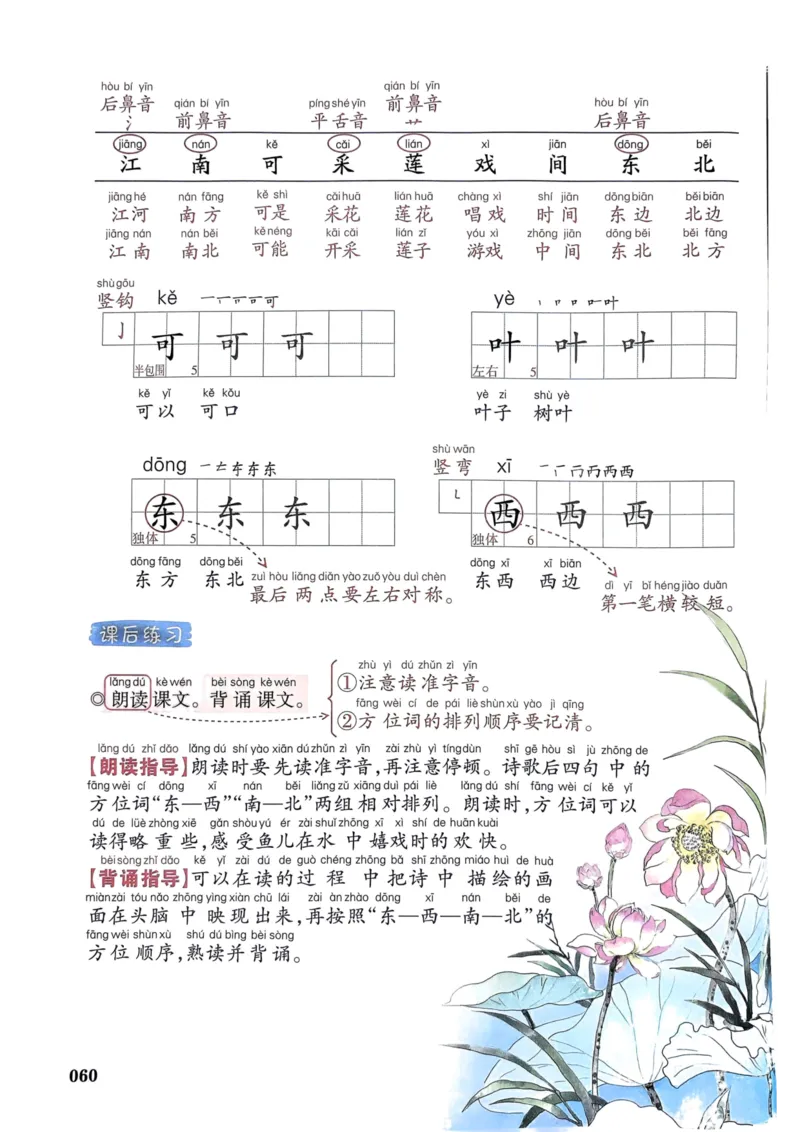 hòu bí yīn qián bí yīn píng shé yīn qián bí yīn hòu bí yīn
后鼻音 前鼻音 平舌音 前鼻音 后鼻音
氵 艹
jiāng nán kě cǎi lián xì jiān dōng běi
江 南 可 采 莲 戏 间 东 北
jiāng hé nán fāng kě shì cǎi huā lián huā chàng xì shí jiān dōng biān běi biān
江河 南方 可是 采花 莲花 唱戏 时间 东边 北边
jiāng nán nán běi kě néng kāi cǎi lián zǐ yóu xì zhōng jiān dōng běi běi fāng
江南 南北 可能 开采 莲子 游戏 中间 东北 北方
shù gōu
竖钩 kě yè
亅 可 可 可 叶 叶 叶
半包围 5 左右 5
kě yǐ kě kǒu yè zi shù yè
可以 可口 叶子 树叶
shù wān
dōng 竖弯 xī
东 东 东 西 西 西
独体 5 独体 6
dōng fāng dōng běi zuì hòu liǎng diǎn yào zuǒ yòu duì chèn dōng xī xī biān dì yī bǐ héng jiào duǎn
东方 东北 最后两点要左右对称。 东西 西边 第一笔横较短。
课后练习
lǎng dú kè wén bèi sòng kè wén
◎朗读课文。背诵课文。
zhù yì dú zhǔn zì yīn
①注意读准字音。
fāng wèi cí de pái liè shùn xù yào jì qīng
②方位词的排列顺序要记清。
lǎng dú zhǐ dǎo lǎng dú shí yào xiān dú zhǔn zì yīn zài zhù yì tíng dùn shī gē hòu sì jù zhōng de
【朗读指导】朗读时要先读准字音,再注意停顿。诗歌后四句中的
fāng wèi cí dōng xī nán běi liǎng zǔ xiāng duì pái liè lǎng dú shí fāng wèi cí kě yǐ
方位词“东—西”“南—北”两组相对排列。朗读时,方位词可以
dú de lüè zhòng xiē gǎn shòu yú ér zài shuǐ zhōng xī xì shí de huān kuài
读得略重些,感受鱼儿在水中嬉戏时的欢快。
bèi sòng zhǐ dǎo kě yǐ zài dú de guò chéng zhōng bǎ shī zhōng miáo huì de huà
【背诵指导】可以在读的过程中把诗中描绘的画
miàn zài tóu nǎo zhōng yìng xiàn chū lái zài àn zhào dōng xī nán běi de
面在头脑中映现出来,再按照“东—西—南—北”的
fāng wèi shùn xù shú dú bìng bèi sòng
方位顺序,熟读并背诵。
060